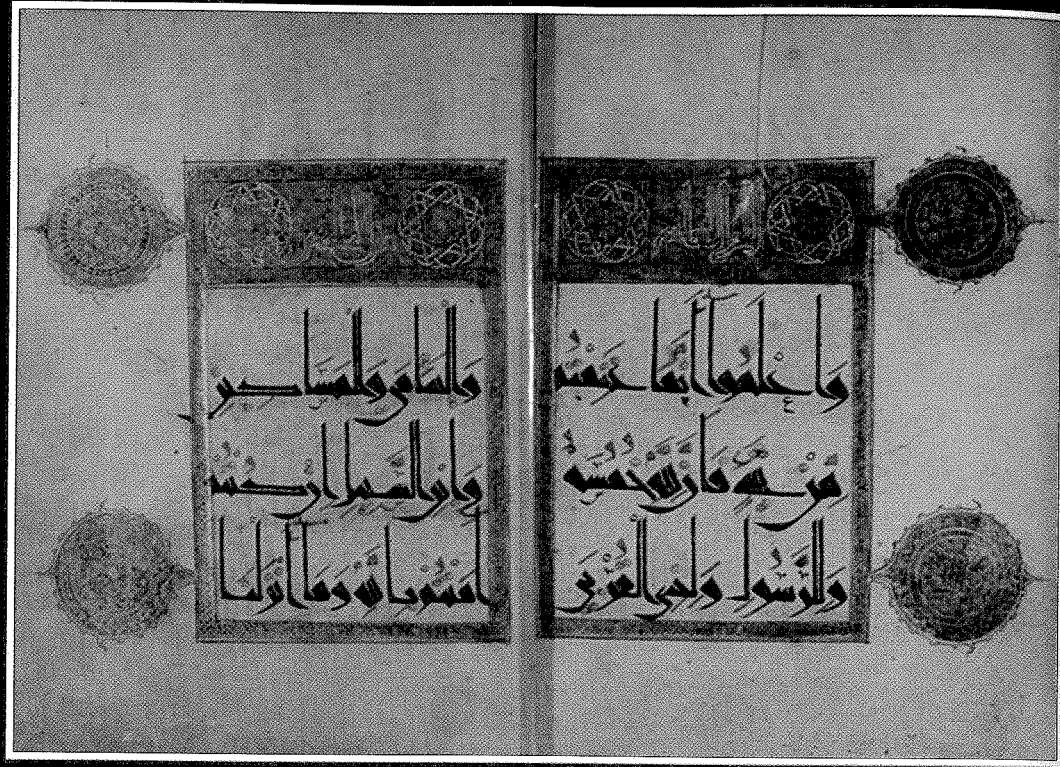 وَاعْلَمُوا أَنَّمَا غَنِمْتُم
مِّن شَيْءٍ فَأَنَّ لِلَّهِ خُمُسَهُ
وَلِلرَّسُولِ وَلِذِي الْقُرْبَى
وَالْيَتَامَى وَالْمَسَاكِينِ
وَابْنِ السَّبِيلِ إِن كُنتُمْ
آمَنتُم بِاللَّهِ وَمَا أَنزَلْنَا